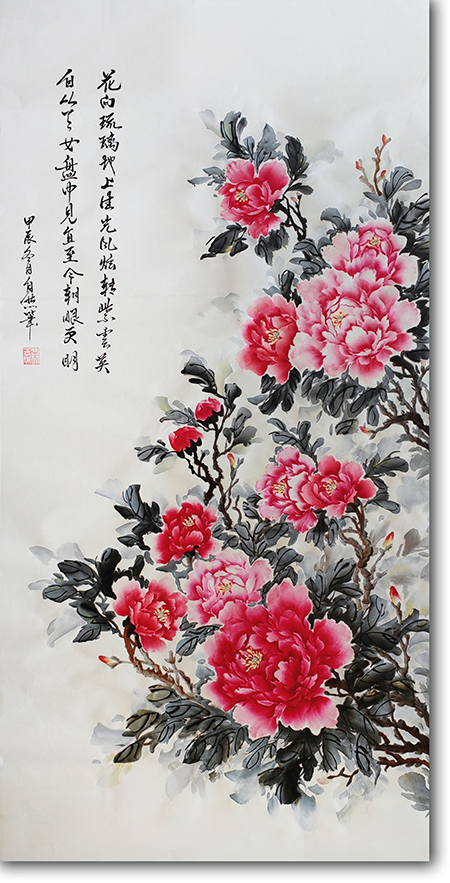 花向琉璃地上生光风炫转紫云英
自从天女盘中见直至今朝眼更明
甲辰冬月自然笔